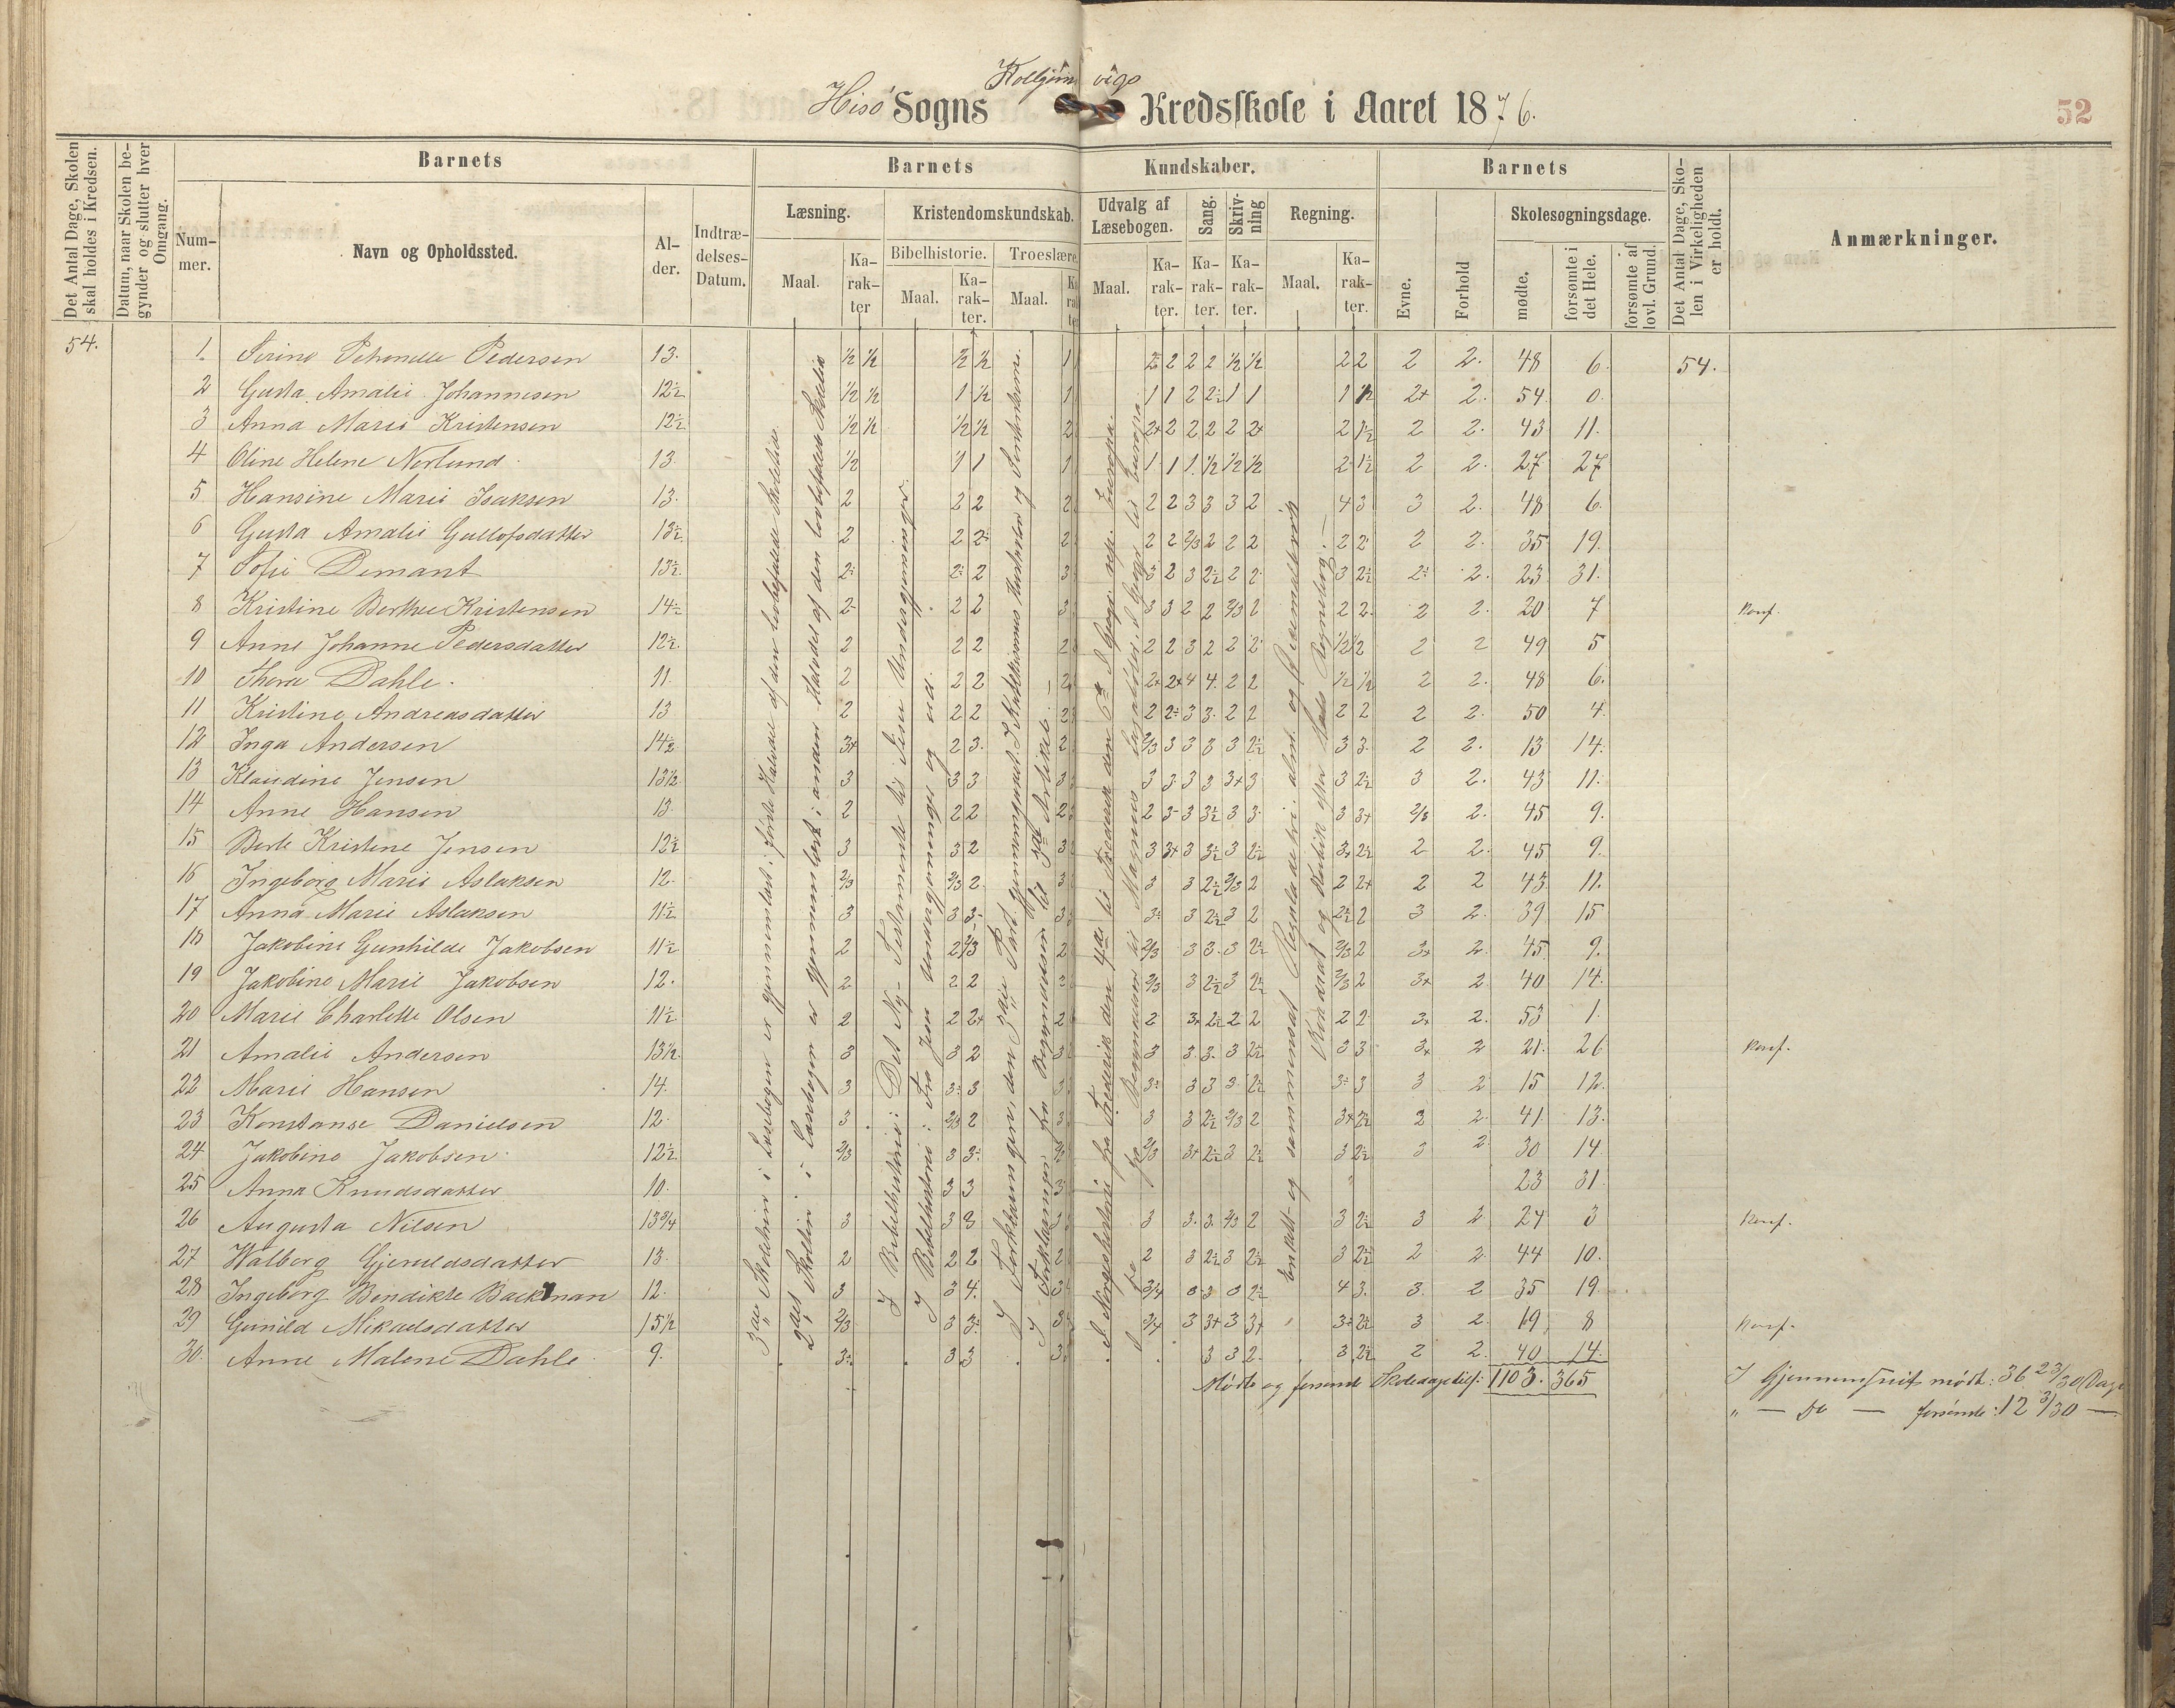 Kolbjørnsvigs
Hisø Sogns Kredsskole i Aaret 1876.
52
Det Antal Dage, Skolen skal holdes i Kredsen.
Datum, naar Skolen begynder og slutter hver Omgang.
Barnets
Nummer.
Navn og Opholdssted.
Alder.
Indtrædelses-Datum.
Barnets Kundskaber.
Læsning.
Maal. Karakter
Kristendomskundskab.
Bibelhistorie. Troeslære.
Maal. Karakter. Maal. Karakter
Udvalg af Læsebogen. Sang. Skrivning Regning.
Maal. Karakter. Karakter. Karakter. Maal. Karakter.
Barnets
Evne. Forhold
Skolesøgningsdage.
mødte. forsømte i det Hele. forsømte af lovl. Grund.
Det Antal Dage, Skolen i Virkeligheden er holdt.
Anmærkninger.
54. 1. Pedersen 13. ½ ½ ½ ½ 1 2 2 2 2 ½ ½ 2 2 2 2. 48 6. 54.
2 Gusta Amalie Johannesen 12½ ½ ½ 1 ½ 1 1 1 2 2÷ 1 1 1 2+ 2. 54 0.
3 Anna Marie Kristensen 12½ ½ ½ ½ ½ 2 2+ 2 2 2 2 2+ 2 1½ 2 2. 43 11.
4 Oline Helene Norlund. 13. ½ 1 1 1 1 1 1. ½ ½ ½ 2 1½ 2 2. 27 27
5 Hansine Marie Isaksen 13. 2 2 2 2 2 2 3 3 3 2 4 3 3 2. 48 6.
6 Gusta Amalie Gullofsdatter 13½ 2 2 2÷ 2 2 2 2/3 2 2 2 2 2 2 2. 35 19.
7 Sofie Demant 13½. 2÷ 2÷ 2 3 3 2 3 2½ 2 2 3 2½ 2÷ 2. 23 31.
8 Kristine Berthee Kristensen 14½ 2- 2 2 3 3 3 2 2 2/3 2 2 2. 2 2. 20 7 konf.
9 Anne Johanne Pedersdatter 12½. 2 2 2 2 2 2 3 2 2 2 ½ ½ 2 2 49 5
10 Thora Dahle. 11. 2 2 2 2 2+ 2+ 4 4. 2 2 ½ ½ 2 2. 48 6.
11 Kristine Andreasdatter 13 2 2 2 2 2 2÷ 3 3. 2 2 2 2 2 2. 50 4.
12 Inga Andersen 14½ 3+ 2 3. 2 2/3 3 3 3 3 2½ 3 3. 2 2. 13 14.
13 Klaudine Jensen 13½ 3 3 3 3 3 3 3 3 3+ 3 3 2½ 3 2. 43 11.
14 Anne Hansen 13. 2 2 2 2 2 3- 3 3½ 3 3. 3 3+ 2/3 2. 45 9.
15 Berte Kristine Jensen 12½ 3 3 2 3 3 3+ 3 3½ 3 2½ 3+ 2½ 2 2. 45 9.
16 Ingeborg Marie Aslaksen 12. 2/3 2/3 2. 3 3 3 2½ 2/3 2 2 2+ 2 2 43 11.
17 Anna Marie Aslaksen 11½ 3 3 3- 3 3÷ 3 2½ 3 2 2½ 2 3 2. 39 15
18 Jakobine Gunhilde Jakobsen 11½ 2 2 2/3 2 2/3 3 3. 3 2½ 2/3 2 3+ 2. 45 9.
19 Jakobine Marie Jakobsen 12. 2 2 2 2/3 3 2½ 3 2½ 2/3 2 3+ 2 40 14.
20 Marie Charlotte Olsen 11½ 2 2 2+ 2 2 3+ 2½ 2 2 2 2 3+ 2. 53 1.
21 Amalie Andersen 13½. 3 3 2 3 3 3. 3. 3 2½ 3 3 3+ 2 21. 26 konf.
22 Marie Hansen 14. 3 3÷ 3 3 3÷ 3 3 3. 2½ 3÷ 3 3 2 15 12.
23 Konstanse Danielsen 12. 3 2/3 2 3 3 3 2½ 2/3 2 3+ 2½ 2 2. 41. 13.
24 Jakobine Jakobsen. 12½ 2/3 3 3÷ 2/3 3+ 2½ 3 2½ 3 2½ 3 2. 30 14
25 Anna Knudsdatter 10. 3 3 3 23 31.
26 Augusta Nilsen 13¾ 3 3 3 3 3. 3. 2/3 2 3 2½ 3 2 24 3 konf.
27 Walborg Gjeruldsdatter 13. 2 2 2 2 2 3 2½ 3 2½ 3 2½ 2 2. 44 10.
28 Ingeborg Bendikte Backman 12. 3 3 4. 3 3/4 3 3 3 2½ 4 3. 3. 2 35 19.
29 Gunild Mikaelsdatter 15½ 2/3 3 3÷ 3 3/4 3 3+ 3 3+ 3÷ 2½ 3 2. 19 8 konf.
30. Anne Malene Dahle. 9. 3÷ 3 3 3 3 3 2. 3 2½ 2 2. 40 14.
Mødte og forsømte Skoledage tils: 1103. 365
I Gjennemsnit mødt: 36 23/30 Dage
" — do — forsømte: 12 3/30 —
3die Skoletrin i Læsebogen er gjennemlæst i første Halvdel af den lovbefalede Skoletid.
2det Skoletrin i Læsebogen er gjennemlæst i anden Halvdel af den lovbefalede Skoletid
I Bibelhistorie: Det Ny-Testamente til Jesu Undergjerninger.
I Bibelhistorie: Fra Jesu Undergjerninger og ud.
I Forklaringen, den 3die Part gjennemgaaet. I Katekismus Hustavlen og Skriftemaal
I Forklaringen fra Begyndelsen til 3die Artikel.
I Norgeshistorie fra Frederik den 4de til Frederik den 6te
fra Begyndelsen til Magnus Lagabøter. I Geogr. til Europa.
Enkelt- og sammensat Reguladetri